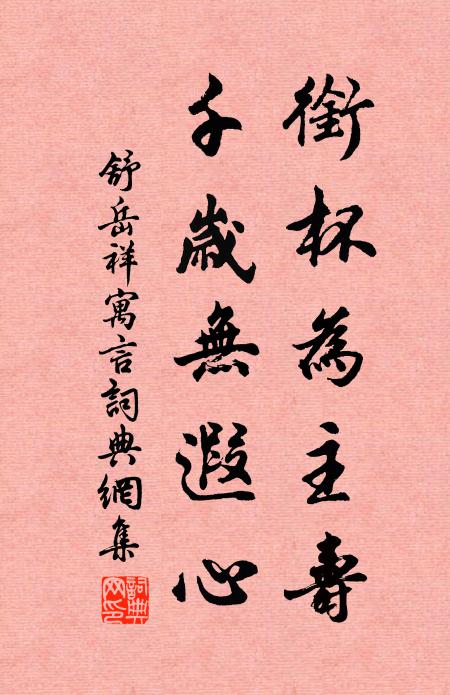 銜杯為主壽
千歲無遐心
舒岳祥寓言詞典網集
詞典網印